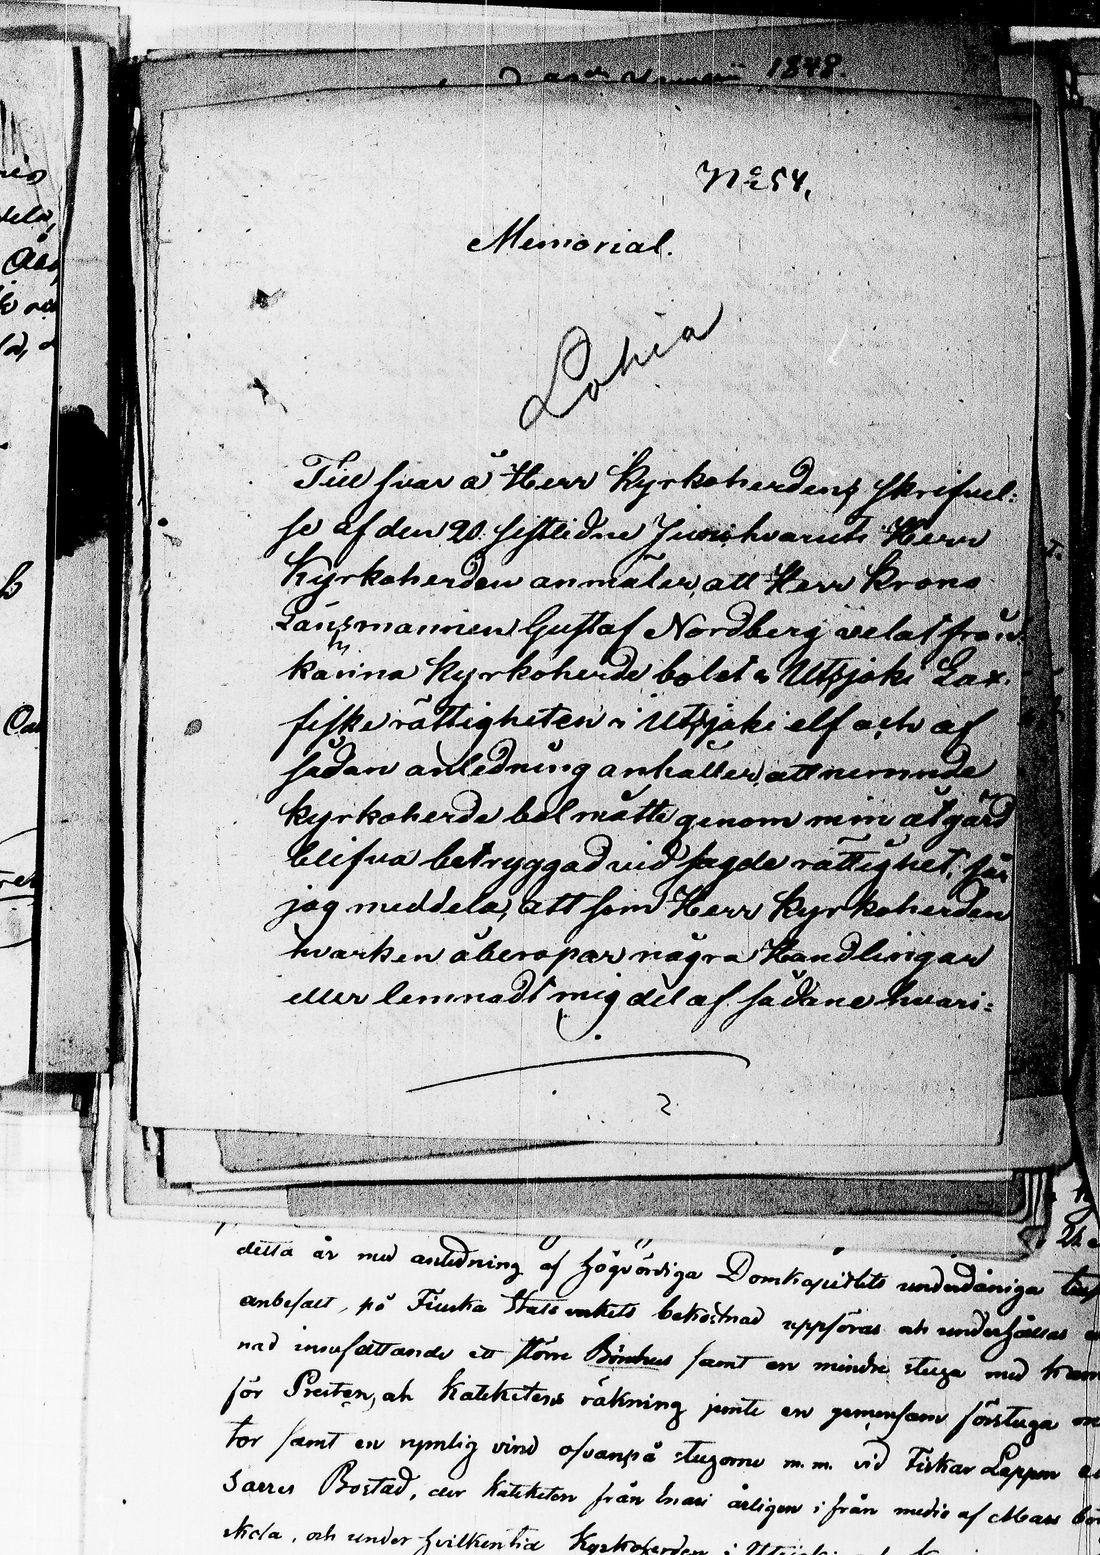 1848.
No 54.
Memorial.
Lohia
Till svar å Herr Kyrkoherdens skrifvel:
se af den 20 sistlidne Juni hvaruti Herr
Kyrkoherden anmäler, att Herr Krono
Länsmannen Gustaf Nordberg velat från
känna Kyrkoherde bolet i Utsjoki Lax.
fiske rättigheten i Utsjoki elf och af
sådan anledning anhåller, att nemnde
Kyrkoherde bol måtte genom min åtgärd
blifva betryggad vid sagde rättighet, får
jag meddela, att som Herr Kyrkoherden
hvarken åberopar några Handlingar
eller lemnadt mig del af sådane hvari:
2
detta år med anledning af Högvördiga Domkapitlets underdåniga
anbefalt, på Finska Stats verkets bekostnad uppföras och underhållas
nad innefattande ett större Bönehus samt en mindre stuga med
för Presten, och Katekетens räkning jemte en gemensam förstuga
tor samt en rymlig vind ofvanpå stugorne m.m. vid Fiskar Lappen
Sarres Bostad, der Kateketen från Enari årligen ifrån medio af Mars
skola, och under hvilken tid Kyrkoherden i